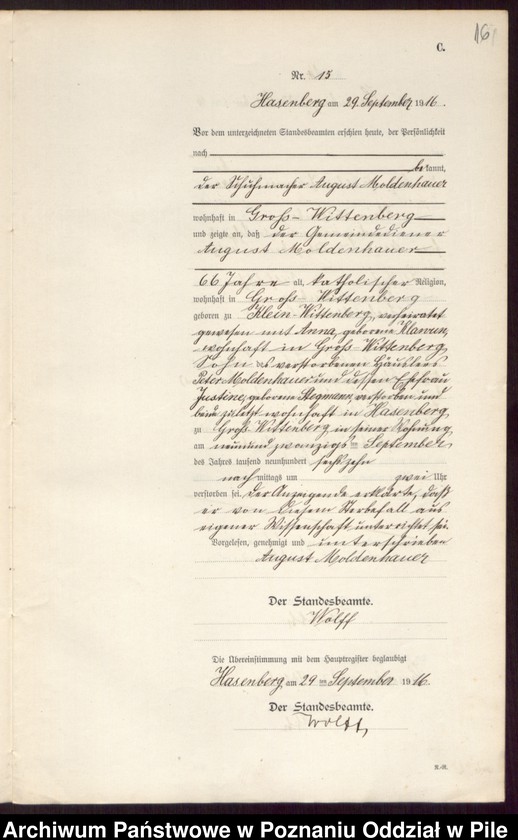 16
C.
Nr. 15
Hasenberg am 29. September 1916.
Vor dem unterzeichneten Standesbeamten erschien heute, der Persönlichkeit
nach
bekannt,
der Schuhmacher August Moldenhauer
wohnhaft in Groß-Wittenberg
und zeigte an, daß der Gemeindediener
August Moldenhauer
66 Jahre alt, katholischer Religion,
wohnhaft in Groß-Wittenberg
geboren zu Klein-Wittenberg, verheiratet
gewesen mit Anna, geborene
wohnhaft in Groß-Wittenberg,
Sohn des verstorbenen Häuslers
Peter Moldenhauer und dessen Ehefrau
Justine, geborene Stegmann, verstorben und
beide zuletzt wohnhaft in Hasenberg,
zu Groß-Wittenberg, in seiner Wohnung,
am neunundzwanzigsten September
des Jahres tausend neunhundert sechzehn
nachmittags um zwei Uhr
verstorben sei. Der Anzeigende erklärte, daß
er von diesem Sterbefall aus
eigener Wissenschaft unterrichtet sei.
Vorgelesen, genehmigt und unterschrieben
August Moldenhauer
Der Standesbeamte.
Wolff
Die Übereinstimmung mit dem Hauptregister beglaubigt
Hasenberg, am 29ten September 1916.
Der Standesbeamte.
Wolff,
Archiwum Państwowe w Poznaniu Oddział w Pile